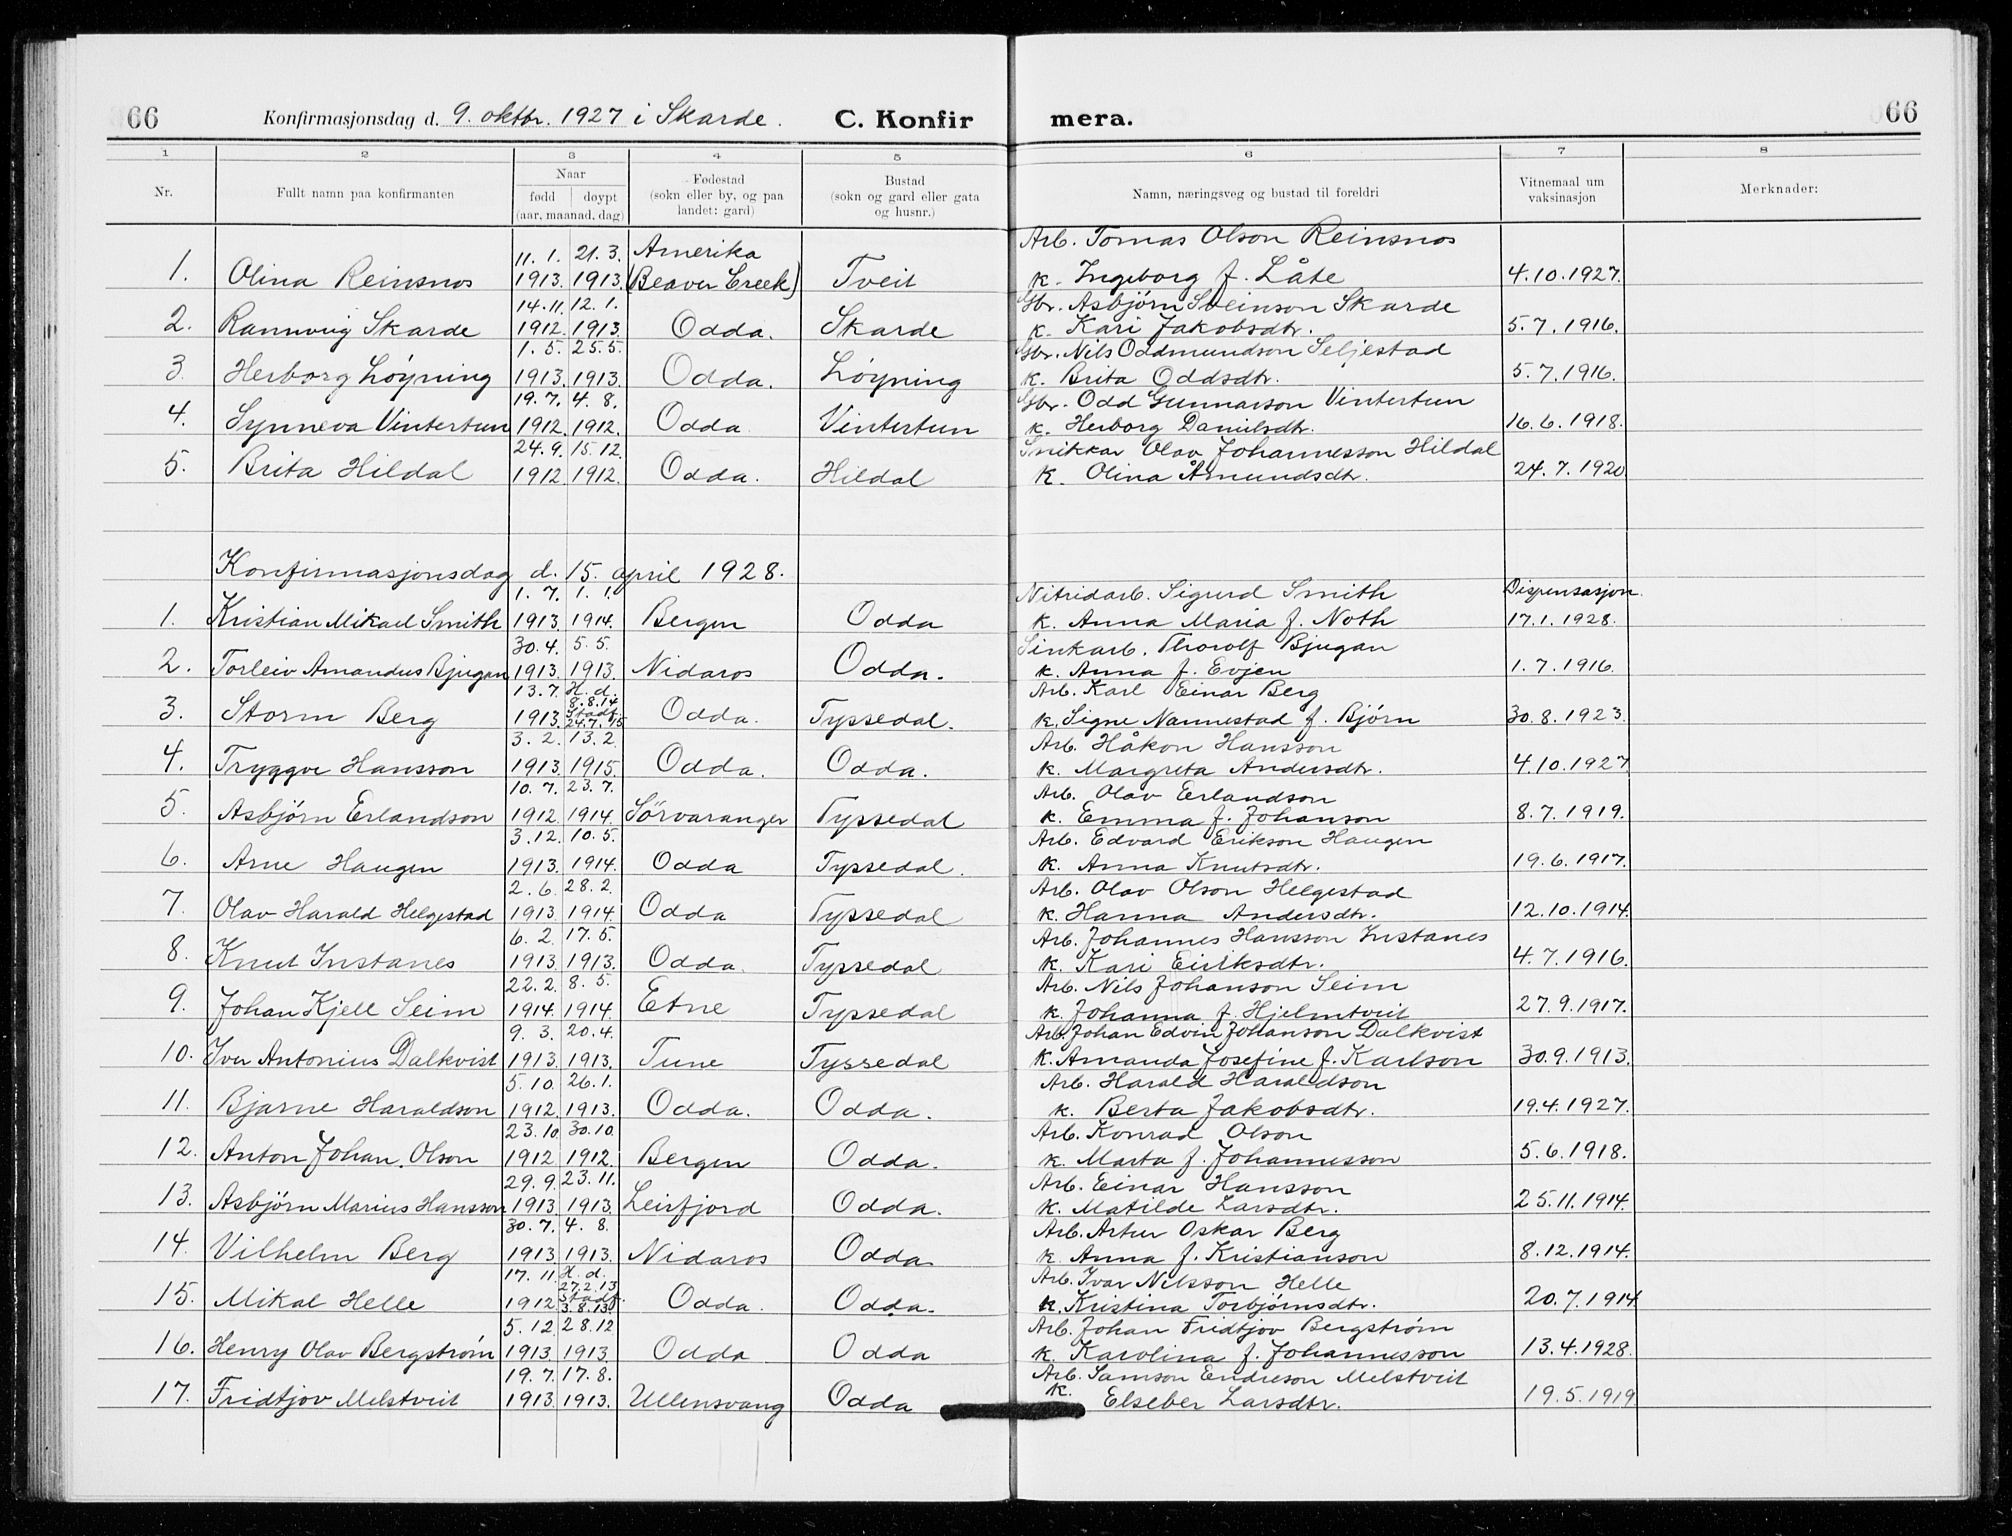 66 Konfirmasjonsdag d. 9. oktbr. 1927 i Skarde. C. Konfirmera. 66
1 2 3 4 5 6 7 8
Nr. Fullt namn paa konfirmanten Naar fødd døypt (aar, maanad, dag) Fødestad (sokn eller by, og paa landet: gard) Bustad (sokn og gard eller gata og husnr.) Namn, næringsveg og bustad til foreldri Vitnemaal um vaksinasjon Merknader:
11. 1. 21. 3. Amerika Arb. Tomas Olson Reinsnos
1. Olina Reinsnos 1913. 1913. (Beaver Creek) Tveit k. Ingeborg f. Låte 4.10.1927.
14. 11. 12. 1. Gbr. Asbjørn Sveinson Skarde
2. Rannveig Skarde 1912. 1913. Odda. Skarde k. Kari Jakobsdtr. 5.7.1916.
1. 5. 25. 5. Gbr. Nils Oddmundson Seljestad
3. Herborg Løyning 1913. 1913. Odda. Løyning k. Brita Oddsdtr. 5.7.1916.
19. 7. 4. 8. Gbr. Odd Gunnarson Vintertun
4. Synneva Vintertun 1912. 1912. Odda Vintertun k. Herborg Danielsdtr. 16.6.1918.
24. 9. 15. 12. Snikkar Olav Johannesson Hildal
5. Brita Hildal 1912 1912. Odda. Hildal k. Olina Åmundsdtr. 24.7.1920
Konfirmasjonsdag d. 15. april 1928.
1. 7. 1. 1. Nitridarb. Sigurd Smith Dispensasjon
1. Kristian Mikael Smith 1913. 1914. Bergen Odda k. Anna Maria f. Noth 17.1.1928.
30. 4. 5. 5. Sinkarb. Thorolf Bjugan
2. Torleiv Amandus Bjugan 1913. 1913. Nidaros Odda. k. Anna f. Evjen 1.7.1916.
13. 7. H. d. 8.8.14 Arb. Karl Einar Berg
3. Storm Berg 1913. Stadf. 24.7.15 Odda. Tyssedal. k. Signe Nannestad f. Bjørn 30.8.1923.
3. 2. 13. 2. Arb. Håkon Hansson
4. Tryggve Hansson 1913. 1915. Odda. Odda. k. Margreta Andersdtr. 4.10.1927
10. 7. 23. 7. Arb. Olav Erlandson
5. Asbjørn Erlandson 1912 1914. Sørvaranger Tyssedal k. Emma f. Johanson 8.7.1919.
3. 12. 10. 5. Arb. Edvard Erikson Haugen
6. Arne Haugen 1913. 1914. Odda Tyssedal. k. Anna Knutsdtr. 19.6.1917.
2. 6. 28. 2. Arb. Olav Olson Helgestad
7. Olav Harald Helgestad 1913. 1914. Odda Tyssedal k. Hanna Andersdtr. 12.10.1914.
6. 2. 17. 5. Arb. Johannes Hansson Instanes
8. Knut Instanes 1913. 1913. Odda. Tyssedal k. Kari Eiriksdtr. 4.7.1916.
22. 2. 8. 5. Arb. Nils Johanson Seim
9. Johan Kjell Seim 1914. 1914. Etne Tyssedal k. Johanna f. Hjelmtveit 27.9.1917.
9. 3. 20. 4. Arb. Johan Edvin Johanson Dalkvist
10. Iver Antonius Dalkvist 1913. 1913. Tune Tyssedal k. Amanda Josefine f. Karlson 30.9.1913.
5. 10. 26. 1. Arb. Harald Haraldson
11. Bjarne Haraldson 1912. 1913. Odda. Odda. k. Berta Jakobsdtr. 19.4.1927.
23. 10. 30. 10. Arb. Konrad Olson
12. Anton Johan Olson 1912 1912. Bergen Odda. k. Marta f. Johannesson 5.6.1918.
29. 9. 23. 11. Arb. Einar Hansson
13. Asbjørn Marius Hansson 1913. 1913. Leirfjord Odda. k. Matilde Larsdtr. 25.11.1914.
30. 7. 4. 8. Arb. Artur Oskar Berg
14. Vilhelm Berg 1913. 1913. Nidaros Odda. k. Anna f. Kristianson 8.12.1914.
17. 11. H. d. 27.2.13 Arb. Ivar Nilsson Helle
15. Mikal Helle 1912. Stadf. 3.8.13 Odda. Odda. k. Kristina Torbjørnsdtr. 20.7.1914
5. 12. 28. 12 Arb. Johan Fridtjov Bergstrøm
16. Henry Olav Bergstrøm 1913. 1913 Odda Odda k. Karolina f. Johannesson 13.4.1928.
19. 7. 17. 8. Arb. Samson Endreson Melstveit
17. Fridtjov Melstveit 1913. 1913. Ullensvang Odda k. Elseber Larsdtr. 19.5.1919